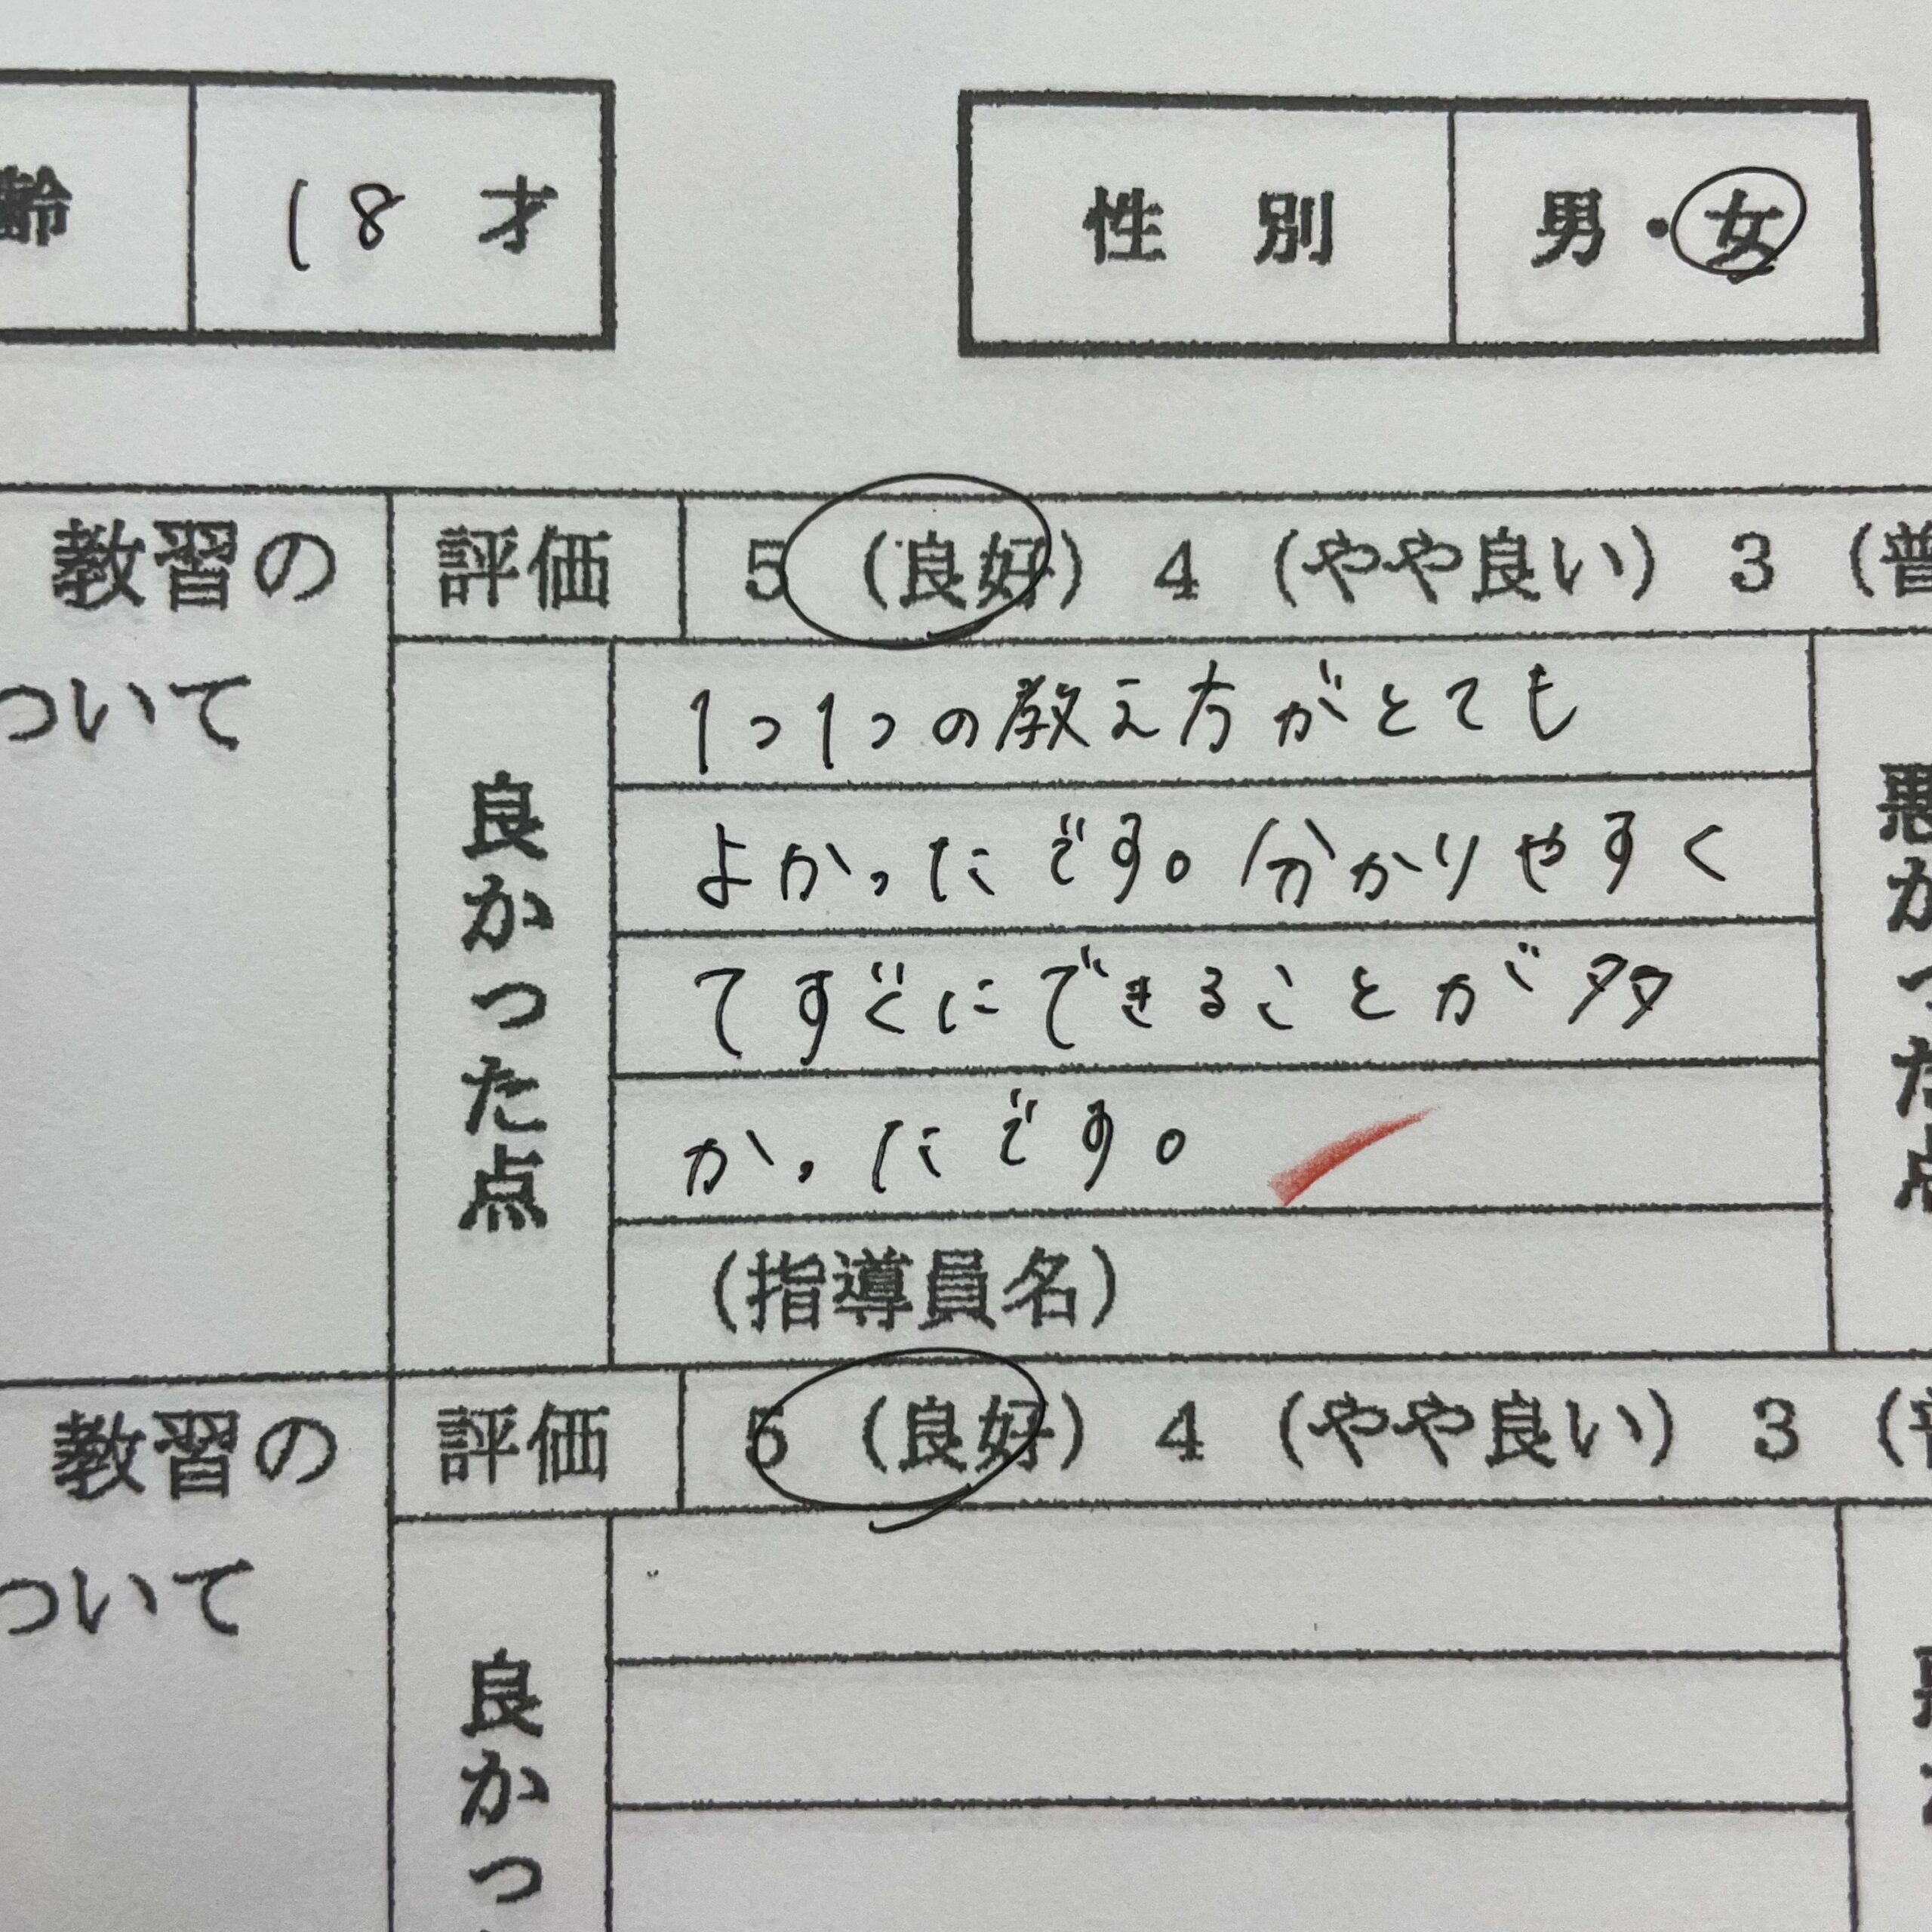 齢 18 才 性 別 男・女
教習の 評価 5 (良好) 4 (やや良い) 3 (普
ついて
良かった点
1つ1つの教え方がとても
よかったです。分かりやすく
てすぐにできることが多
かったです。
(指導員名)
悪かった点
教習の 評価 5 (良好) 4 (やや良い) 3 (
ついて
良かっ